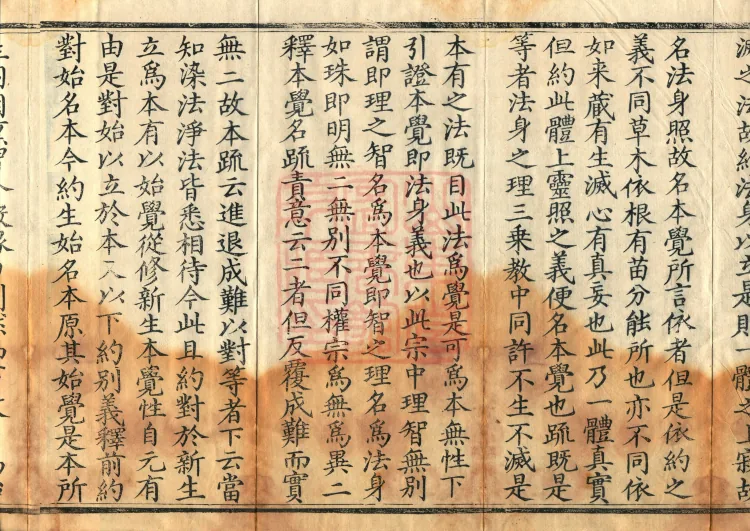 滅之法故約法身以立是則一體之上寂故
名法身照故名本覺所言依者但是依約之
義不同草木依根有苗分能所也亦不同依
如来蔵有生滅心有真妄也此乃一體真實
但約此體上靈照之義便名本覺也疏既是
等者法身之理三乗教中同許不生不滅是
本有之法既目此法爲覺是可爲本無性下
引證本覺即法身義也以此宗中理智無別
謂即理之智名爲本覺即智之理名爲法身
如珠即明無二無別不同權宗爲無爲異二
釋本覺名疏責意云二者但反覆成難而實
無二故本疏云進退成難以對等者下云當
知染法淨法皆悉相待今此且約對於新生
立爲本有以始覺從修新生本覺性自元有
由是對始以立於本又以下約別義釋前約
對始名本今約生始名本原其始覺是本所